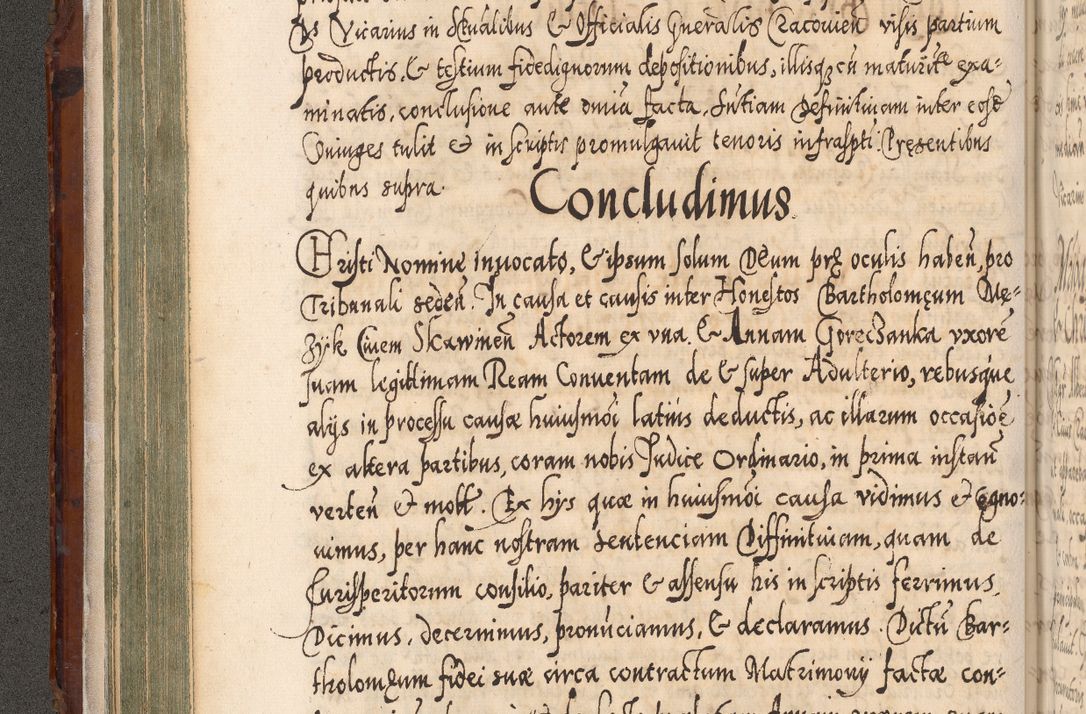 Ds Vicarius in Sp̃ualibus & Officialis Gneralis Cracovien̄ visis partium
productis, & testium fidedignorum depositionibus, illisq; cū maturit̃e exa=
minatis, conclusione ante omnia facta. Sñtiam definitivam inter eosd̃
Coniuges tulit & in scriptis promulgavit tenoris infrasp̃ti. Pręsentibus
quibus supra.
Concludimus.
Christi Nomine invocato, & ipsum solum Deum prę oculis haben̄, pro
Tribunali seden̄. In causa et causis inter Honestos Bartholomęum Mę=
zyk Civem Skawinen̄ Actorem ex una. & Annam Goreczanka uxorē
suam legittimam Ream Conventam de & super Adulterio, rebusque
alijs in processu causæ huiusmōi latius deductis, ac illarum occasiōe
ex altera partibus, coram nobis Iudice Ordinario, in prima instan̄
verten̄ & mott̃. Ex hijs quæ in huiusmōi causa vidimus & cogno=
vimus, per hanc nostram Sentenciam Diffinitivam, quam de
Iurisperitorum consilio, pariter & assensu his in scriptis ferrimus.
Dicimus, decernimus, pronūciamus, & declaramus. Dictū Bar=
tholomęum fidei suæ circa contractum Matrimonij factæ con=